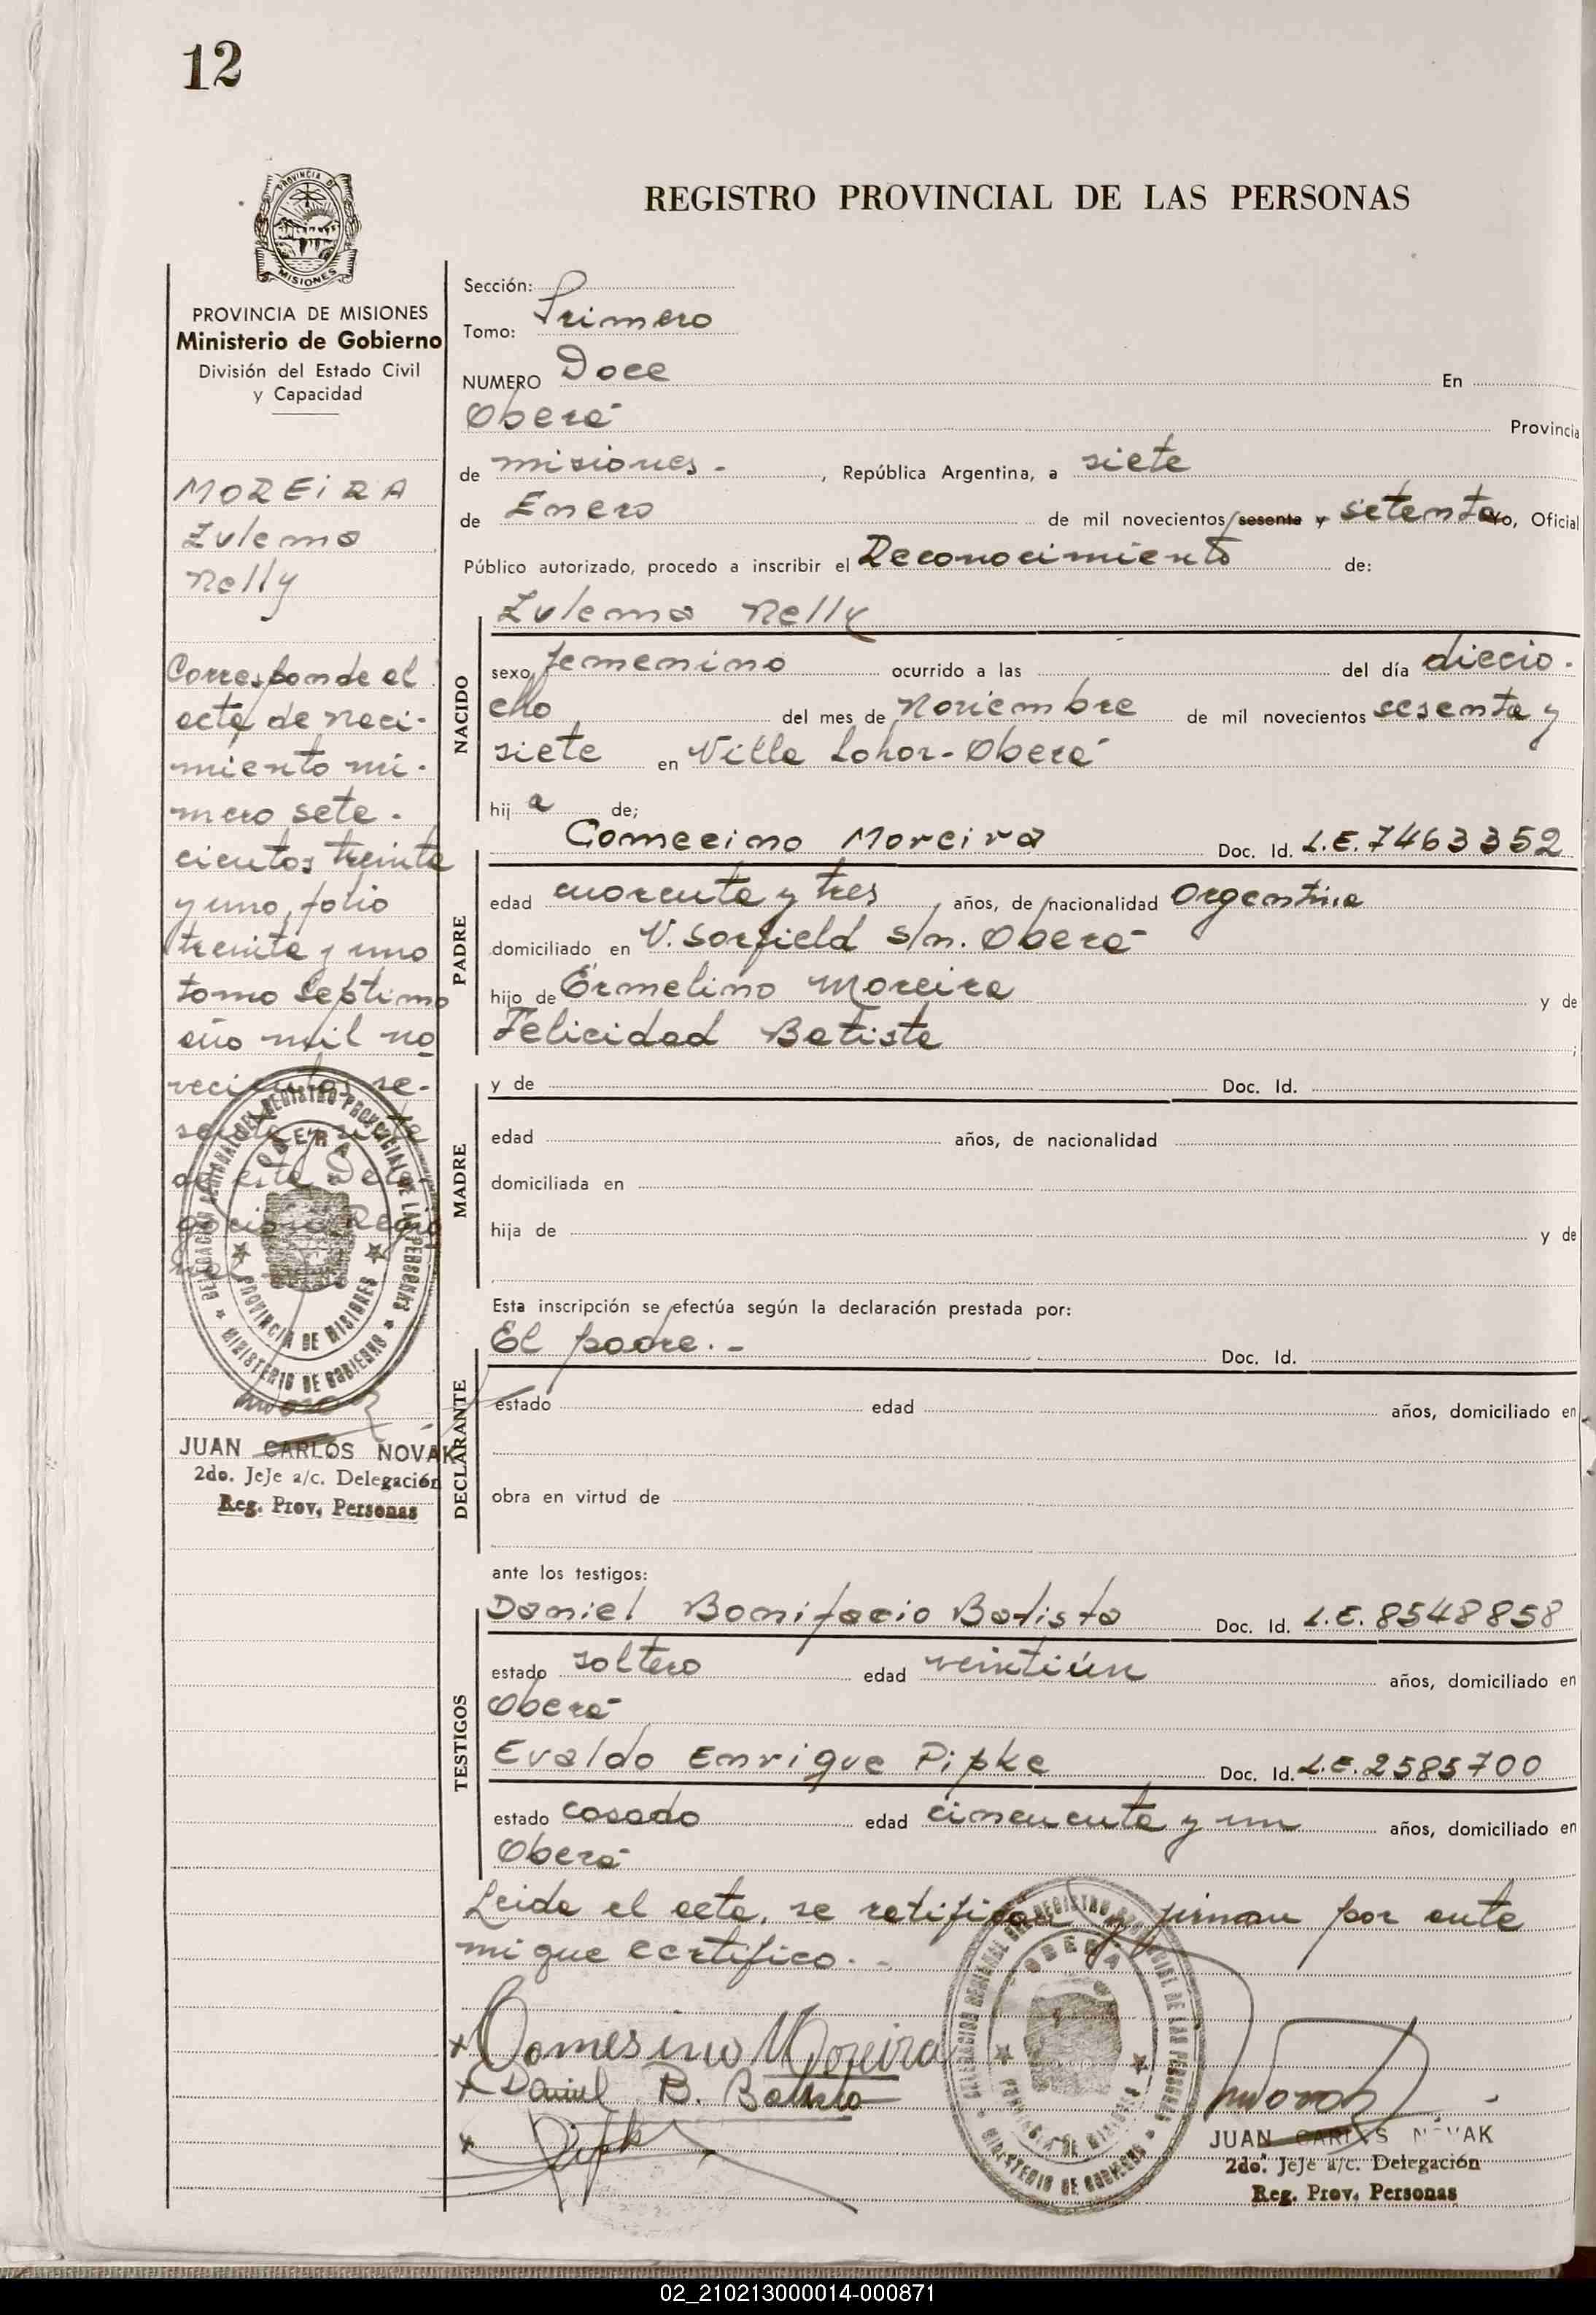 12
PROVINCIA DE MISIONES
REGISTRO PROVINCIAL DE LAS PERSONAS
PROVINCIA DE MISIONES
Ministerio de Gobierno
División del Estado Civil
y Capacidad
MOREIRA
Zulema
Nelly
Corresponde el
acta de naci-
miento nú-
mero sete-
cientos treinta
y uno, folio
treinta y uno
tomo Septimo
año mil no
vecientos se-
senta y siete
de esta Dele-
gación Regio
nal
DELEGACION REGIONAL DEL REGISTRO PROVINCIAL DE LAS PERSONAS
OBERA
PROVINCIA DE MISIONES
MINISTERIO DE GOBIERNO
JUAN CARLOS NOVAK
2do. JeJe a/c. Delegación
Reg. Prov. Personas
Sección:
Tomo: Primero
NUMERO Doce En
Oberá Provincia
de misiones.- , República Argentina, a siete
de Enero de mil novecientos sesenta y setenta Yo, Oficial
Público autorizado, procedo a inscribir el Reconocimiento de:
NACIDO
Zulema Nelly
sexo femenino ocurrido a las del día diecio-
cho del mes de Noviembre de mil novecientos sesenta y
siete en Villa Lohor-Oberá
hij a de;
PADRE
Gomecino Moreira Doc. Id. L.E. 7463352
edad cuarenta y tres años, de nacionalidad Argentina
domiciliado en V. Sarfield s/n. Oberá
hijo de Ermelino Moreira y de
Felicidad Batista ;
MADRE
y de Doc. Id.
edad años, de nacionalidad
domiciliada en
hija de y de
Esta inscripción se efectúa según la declaración prestada por:
DECLARANTE
El padre.- Doc. Id.
estado edad años, domiciliado en
obra en virtud de
ante los testigos:
TESTIGOS
Daniel Bonifacio Batista Doc. Id. L.E. 8548858
estado soltero edad veintiún años, domiciliado en
Oberá
Evaldo Enrique Pipke Doc. Id. L.E. 2585700
estado casado edad cincuenta y un años, domiciliado en
Oberá
Leida el acta, se ratifican y firman por ante
mi que certifico.-
x Gomesino Moreira
x Daniel B. Batista
x Pipke
DELEGACION REGIONAL DEL REGISTRO PROVINCIAL DE LAS PERSONAS
OBERA
PROVINCIA DE MISIONES
MINISTERIO DE GOBIERNO
JUAN CARLOS NOVAK
2do. JeJe a/c. Delegación
Reg. Prov. Personas
02_210213000014-000871